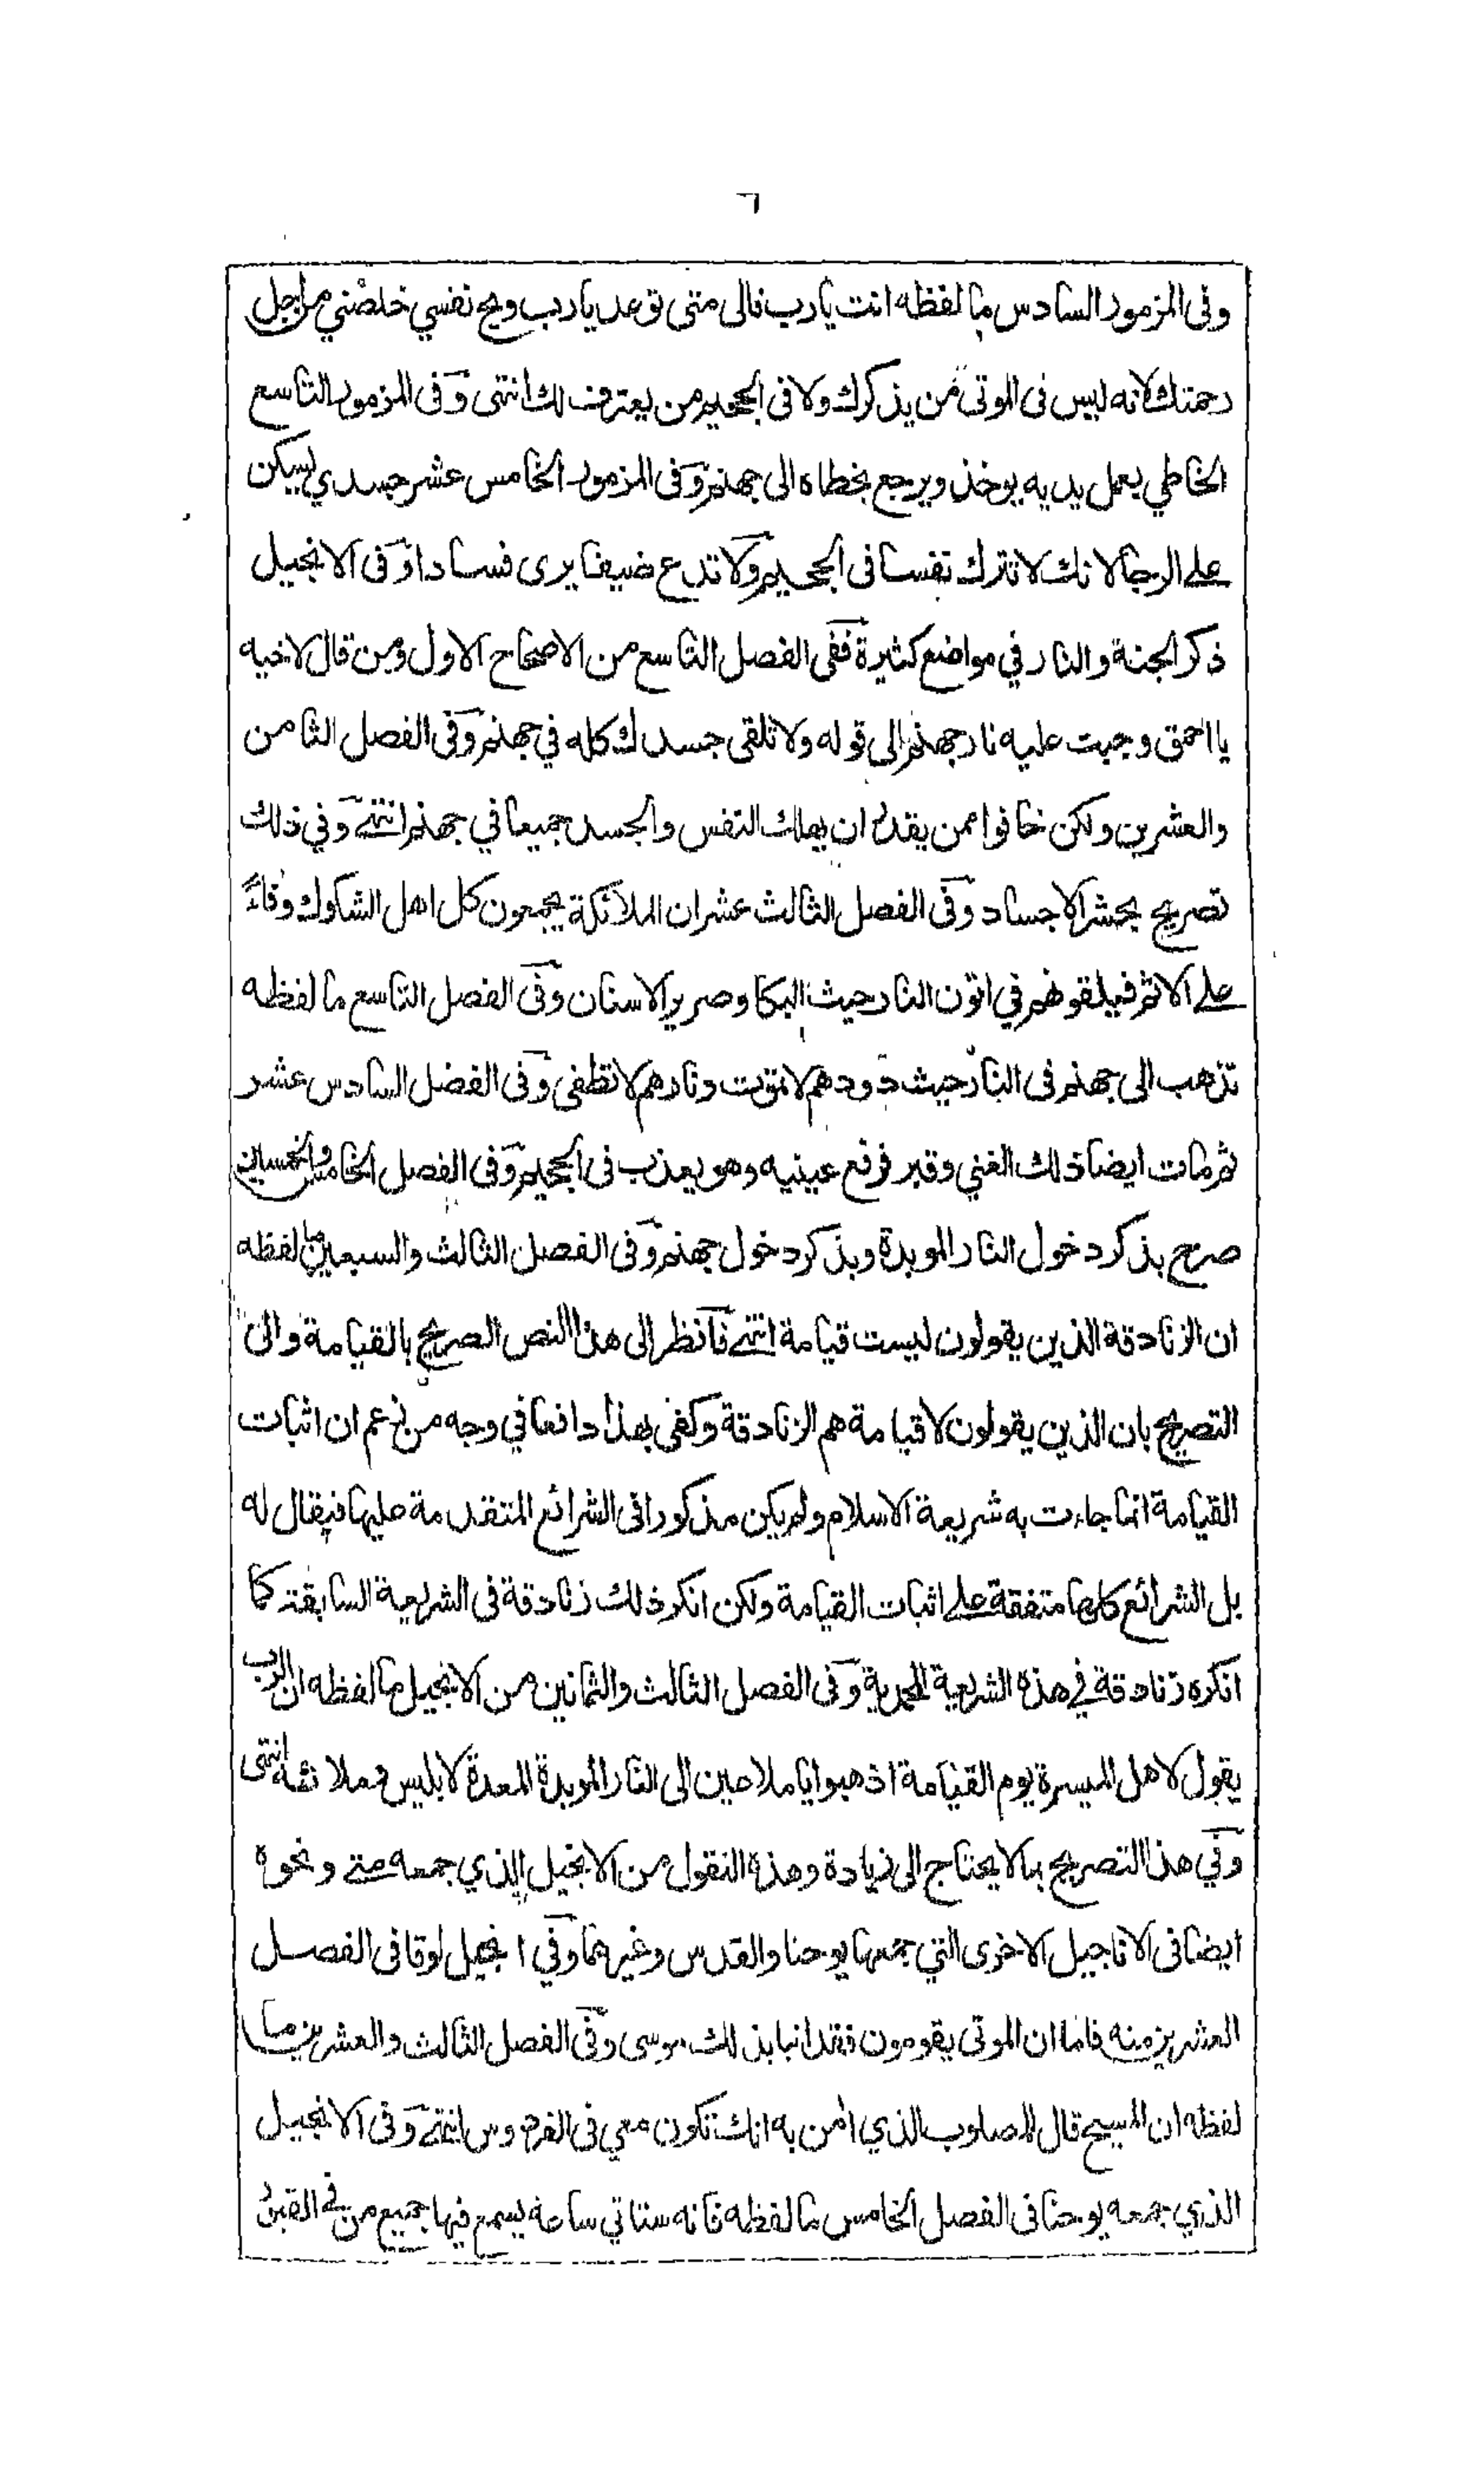 ٦
وفى المزمور السادس ما لفظه انت يا رب فالى متى توعد يا رب ويح نفسي خلصني من اجل
رحمتك لانه ليس فى الموتى من يذكرك ولا فى الجحيم من يعترف لك انتهى وفى المزمور التاسع
الخاطي بعمل يديه يوخذ ويرجع بخطاه الى جهنم وفى المزمور الخامس عشر جسدي يسكن
على الرجا لانك لا تترك نفسا فى الجحيم ولا تدع ضيفا يرى فسادا وفى الانجيل
ذكر الجنة والنار في مواضع كثيرة ففى الفصل التاسع من الاصحاح الاول ومن قال لاخيه
يا احمق وجبت عليه نار جهنم الى قوله ولا تلقى جسدك كله في جهنم وفى الفصل الثامن
والعشرين ولكن خافوا ممن يقدر ان يهلك النفس والجسد جميعا في جهنم انتهى وفي ذلك
تصريح بحشر الاجساد وفى الفصل الثالث عشر ان الملائكة يجمعون كل اهل الشكوك وفاعلى
على الاثم فيلقونهم في اتون النار حيث البكا وصرير الاسنان وفى الفصل التاسع ما لفظه
تذهب الى جهنم فى النار حيث دودهم لا تموت ونارهم لا تطفى وفى الفصل السادس عشر
ثم مات ايضا ذلك الغني وقبر فرفع عينيه وهو يعذب فى الجحيم وفى الفصل الخامس والخمسين
صرح بذكر دخول النار الموبدة وبذكر دخول جهنم وفى الفصل الثالث والسبعين ما لفظه
ان الزنادقة الذين يقولون ليست قيامة انتهى فانظر الى هذا النص الصريح بالقيامة والى
التصريح بان الذين يقولون لا قيامة هم الزنادقة وكفى بهذا دافعا في وجه من زعم ان اثبات
القيامة انما جاءت به شريعة الاسلام ولم يكن مذكورا فى الشرائع المتقدمة عليها فيقال له
بل الشرائع كلها متفقة على اثبات القيامة ولكن انكر ذلك زنادقة فى الشريعة السابقة كما
انكره زنادقة في هذه الشريعة المحمدية وفى الفصل الثالث والثمانين من الانجيل ما لفظه ان الرب
يقول لاهل الميسرة يوم القيامة اذهبوا يا ملاعين الى النار الموبدة المعدة لابليس وملائكته انتهى
وفي هذا التصريح بما لا يحتاج الى زيادة وهذه النقول من الانجيل الذي جمعه متى ونحوه
ايضا فى الاناجيل الاخرى التي جمعها يوحنا والقدس وغيرهما وفي انجيل لوقا فى الفصل
العشرين منه فاما ان الموتى يقومون فقد انبا بذلك موسى وفى الفصل الثالث والعشرين ما
لفظه ان المسيح قال للمصلوب الذي امن به انك تكون معي فى الفردوس انتهى وفى الانجيل
الذي جمعه يوحنا فى الفصل الخامس ما لفظه فانه ستاتي ساعة يسمع فيها جميع من فى القبور